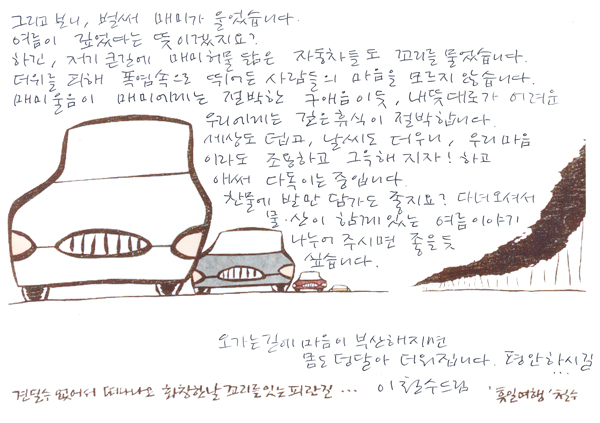 그리고 보니, 벌써 매미가 울었습니다.
여름이 깊었다는 뜻이겠지요?
하긴, 저기 큰길에 매미허물 닮은 자동차들도 꼬리를 물었습니다.
더위를 피해 폭염속으로 뛰어든 사람들의 마음을 모르지 않습니다.
매미울음이 매미에게는 절박한 구애음이듯, 내뜻대로가 어려운
우리에게는 짧은휴식이 절박합니다.
세상도 덥고, 날씨도 더우니, 우리마음
이라도 조용하고 그윽해지자! 하고
애써 다독이는 중입니다.
찬물에 발만 담가도 좋지요? 다녀오셔서
물·산이 함께있는 여름이야기
나누어 주시면 좋을듯
싶습니다.
오가는길에 마음이 부산해지면
몸도 덩달아 더워집니다. 평안하시길
...
견딜수 없어서 떠나나고 화창한날 꼬리를잇는피란길 ... 이철수드림 '휴일여행' 철수